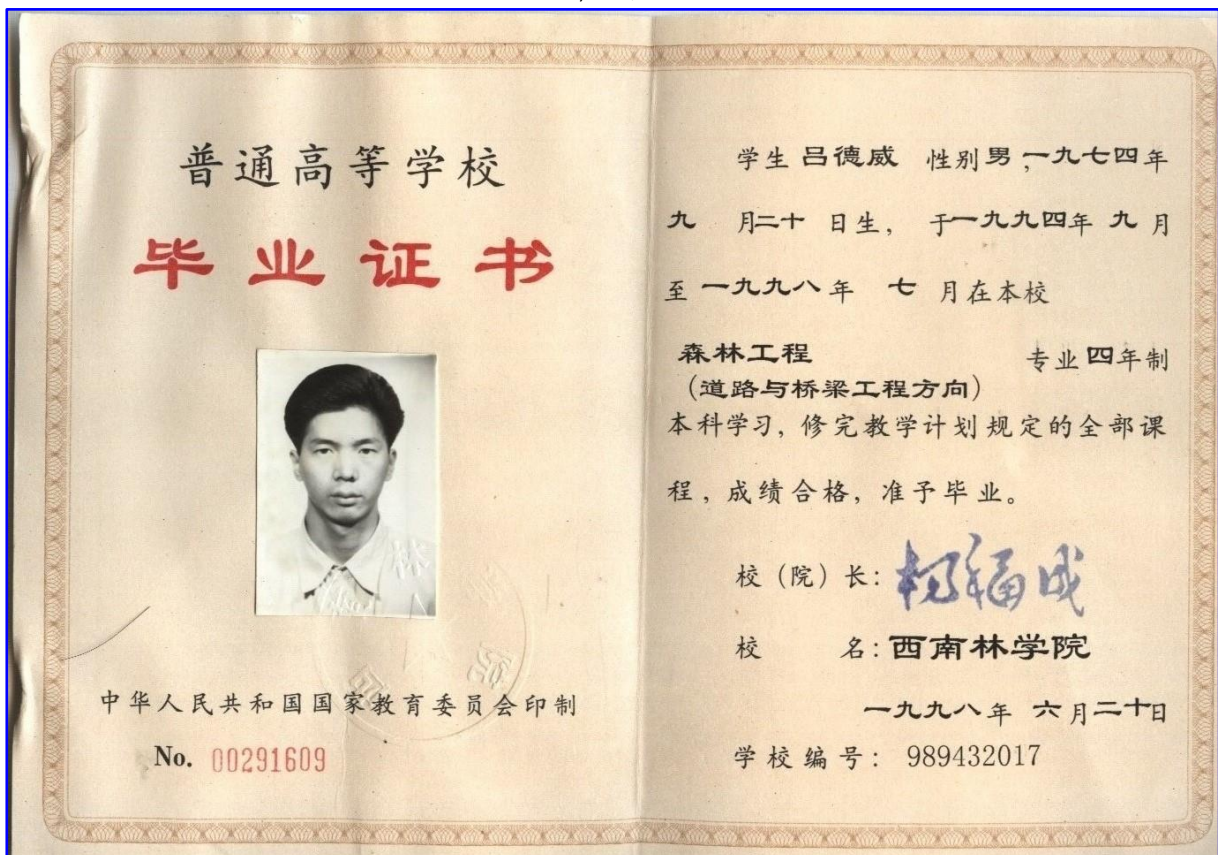 普通高等学校
毕业证书
中华人民共和国国家教育委员会印制
No. 00291609
学生 吕德威 性别 男,一九七四年
九 月二十 日生, 于一九九四年 九 月
至 一九九八年 七 月在本校
森林工程 专业 四年制
(道路与桥梁工程方向)
本科学习, 修完教学计划规定的全部课
程, 成绩合格, 准予毕业。
校(院)长: 杨福成
校 名: 西南林学院
一九九八年 六月二十日
学校编号: 989432017
林
学院